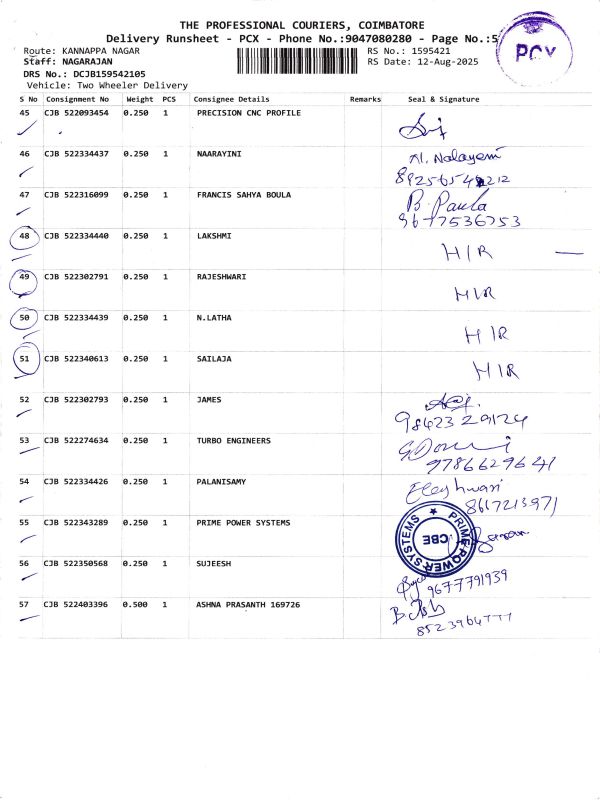 THE PROFESSIONAL COURIERS, COIMBATORE
Delivery Runsheet - PCX - Phone No.:9047080280 - Page No.:5
PCX
Route: KANNAPPA NAGAR RS No.: 1595421
Staff: NAGARAJAN RS Date: 12-Aug-2025
DRS No.: DCJB159542105
Vehicle: Two Wheeler Delivery
S No Consignment No Weight PCS Consignee Details Remarks Seal & Signature
45 CJB 522093454 0.250 1 PRECISION CNC PROFILE
46 CJB 522334437 0.250 1 NAARAYINI N. Nalayeni
47 CJB 522316099 0.250 1 FRANCIS SAHYA BOULA B. Paula
9677536753
48 CJB 522334440 0.250 1 LAKSHMI H/R
49 CJB 522302791 0.250 1 RAJESHWARI H/R
50 CJB 522334439 0.250 1 N.LATHA H/R
51 CJB 522340613 0.250 1 SAILAJA H/R
52 CJB 522302793 0.250 1 JAMES
9842329124
53 CJB 522274634 0.250 1 TURBO ENGINEERS
9786629641
54 CJB 522334426 0.250 1 PALANISAMY
8617213971
55 CJB 522343289 0.250 1 PRIME POWER SYSTEMS PRIME POWER SYSTEMS CBE
56 CJB 522350568 0.250 1 SUJEESH
9677791939
57 CJB 522403396 0.500 1 ASHNA PRASANTH 169726
8523964777